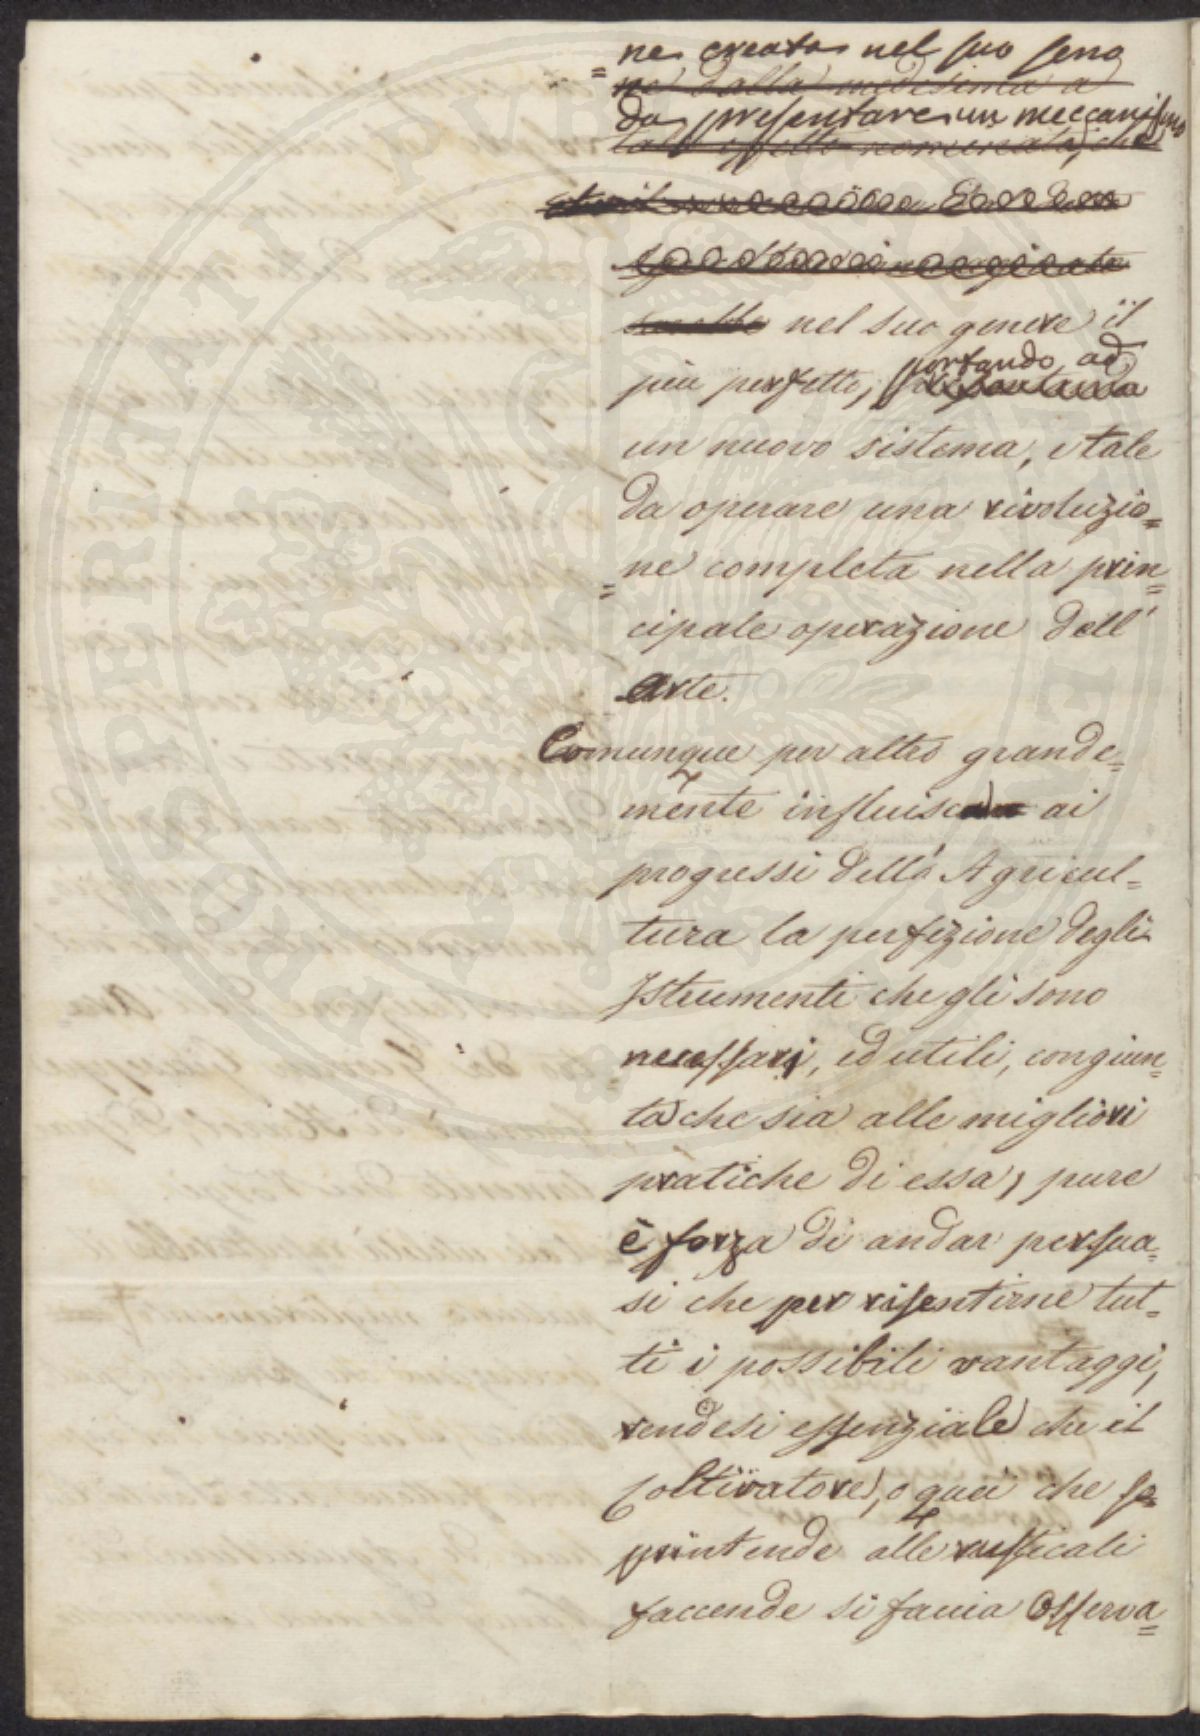 ne creata nel suo seno
ne dalla medesima a
da presentare un meccanismo
tale effetto nominata, che
nel suo genere il
più perfetto, portando ad
un nuovo sistema, e tale
da operare una rivoluzio=
=ne completa nella prin=
cipale operazione dell'
Arte.
Comunque per altro grande=
mente influisca ai
progressi dell'Agricul=
tura la perfezione degli
Istrumenti che gli sono
necessarj, ed utili, congiun=
ta che sia alle migliori
pratiche di essa, pure
è forza di andar persua=
si che per risentirne tut=
ti i possibili vantaggi,
rendesi essenziale che il
Coltivatore, o quei che so=
printende alle rusticali
faccende si faccia Osserva=
PROSPERITATI PUBLICAE AUGENDAE